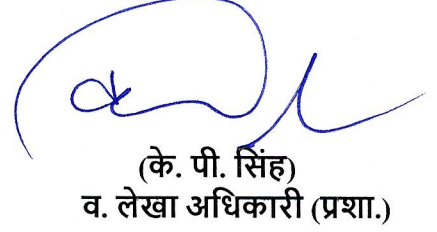 (के. पी. सिंह)
व. लेखा अधिकारी (प्रशा.)